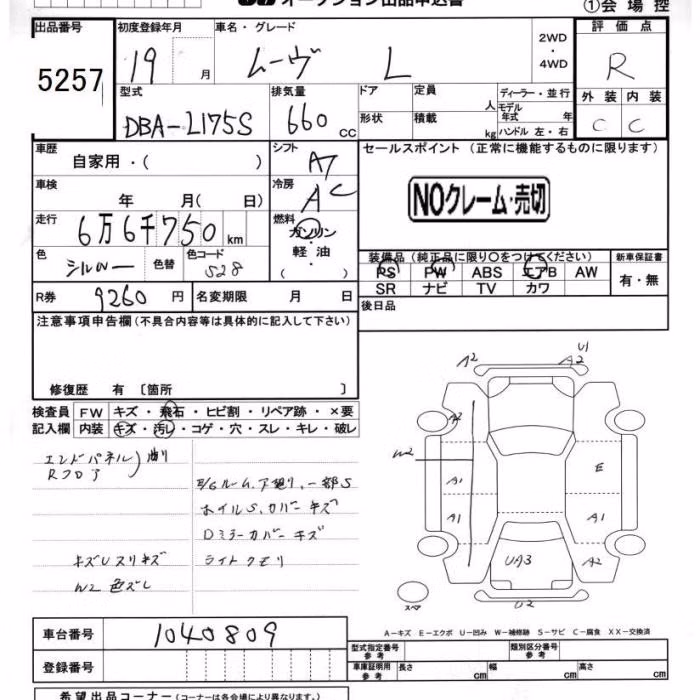 オークション出品申込書
①会場控
出品番号 5257
初度登録年月 19 月
車名・グレード ムーヴ L
2WD
・
4WD
評価点 R
外装 内装
C C
型式 DBA-L175S
排気量 660 cc
ドア
形状
定員 人
積載 kg
ディーラー・並行
モデル年式 年
ハンドル 左・右
車歴 自家用・( )
シフト AT
セールスポイント (正常に機能するものに限ります)
NOクレーム・売切
車検 年 月( 日)
冷房 AC
走行 6万6千750 km
燃料 ガソリン
・
軽油
・
( )
色 シルバー 色替 色コード S28
装備品 (純正品に限り○をつけてください)
PS PW ABS エアB AW
SR ナビ TV カワ
新車保証書
有・無
R券 9260 円 名変期限 月 日
後日品
注意事項申告欄(不具合内容等は具体的に記入して下さい)
修復歴 有 〔箇所 〕
検査員記入欄
FW キズ・飛石・ヒビ割・リペア跡・×要
内装 キズ・汚レ・コゲ・穴・スレ・キレ・破レ
エンドパネル
Rフロア
曲り
E/Gルーム、ア廻り、一部S
ホイルS、カバーキズ
Dミラーカバーキズ
キズUスリキズ
ライトクモリ
W2 色ズレ
A2 A2 U1
A2
W2
A1 E
A1 A1
UA3 A2
U2
スペア
A-キズ E-エクボ U-凹み W-補修跡 S-サビ C-腐食 XX-交換済
車台番号 1040809
登録番号
型式指定番号 参考
類別区分番号 参考
車庫証明用 参考 長さ cm 幅 cm 高さ cm
希望出品コーナー(コーナーは各会場により異なります。)